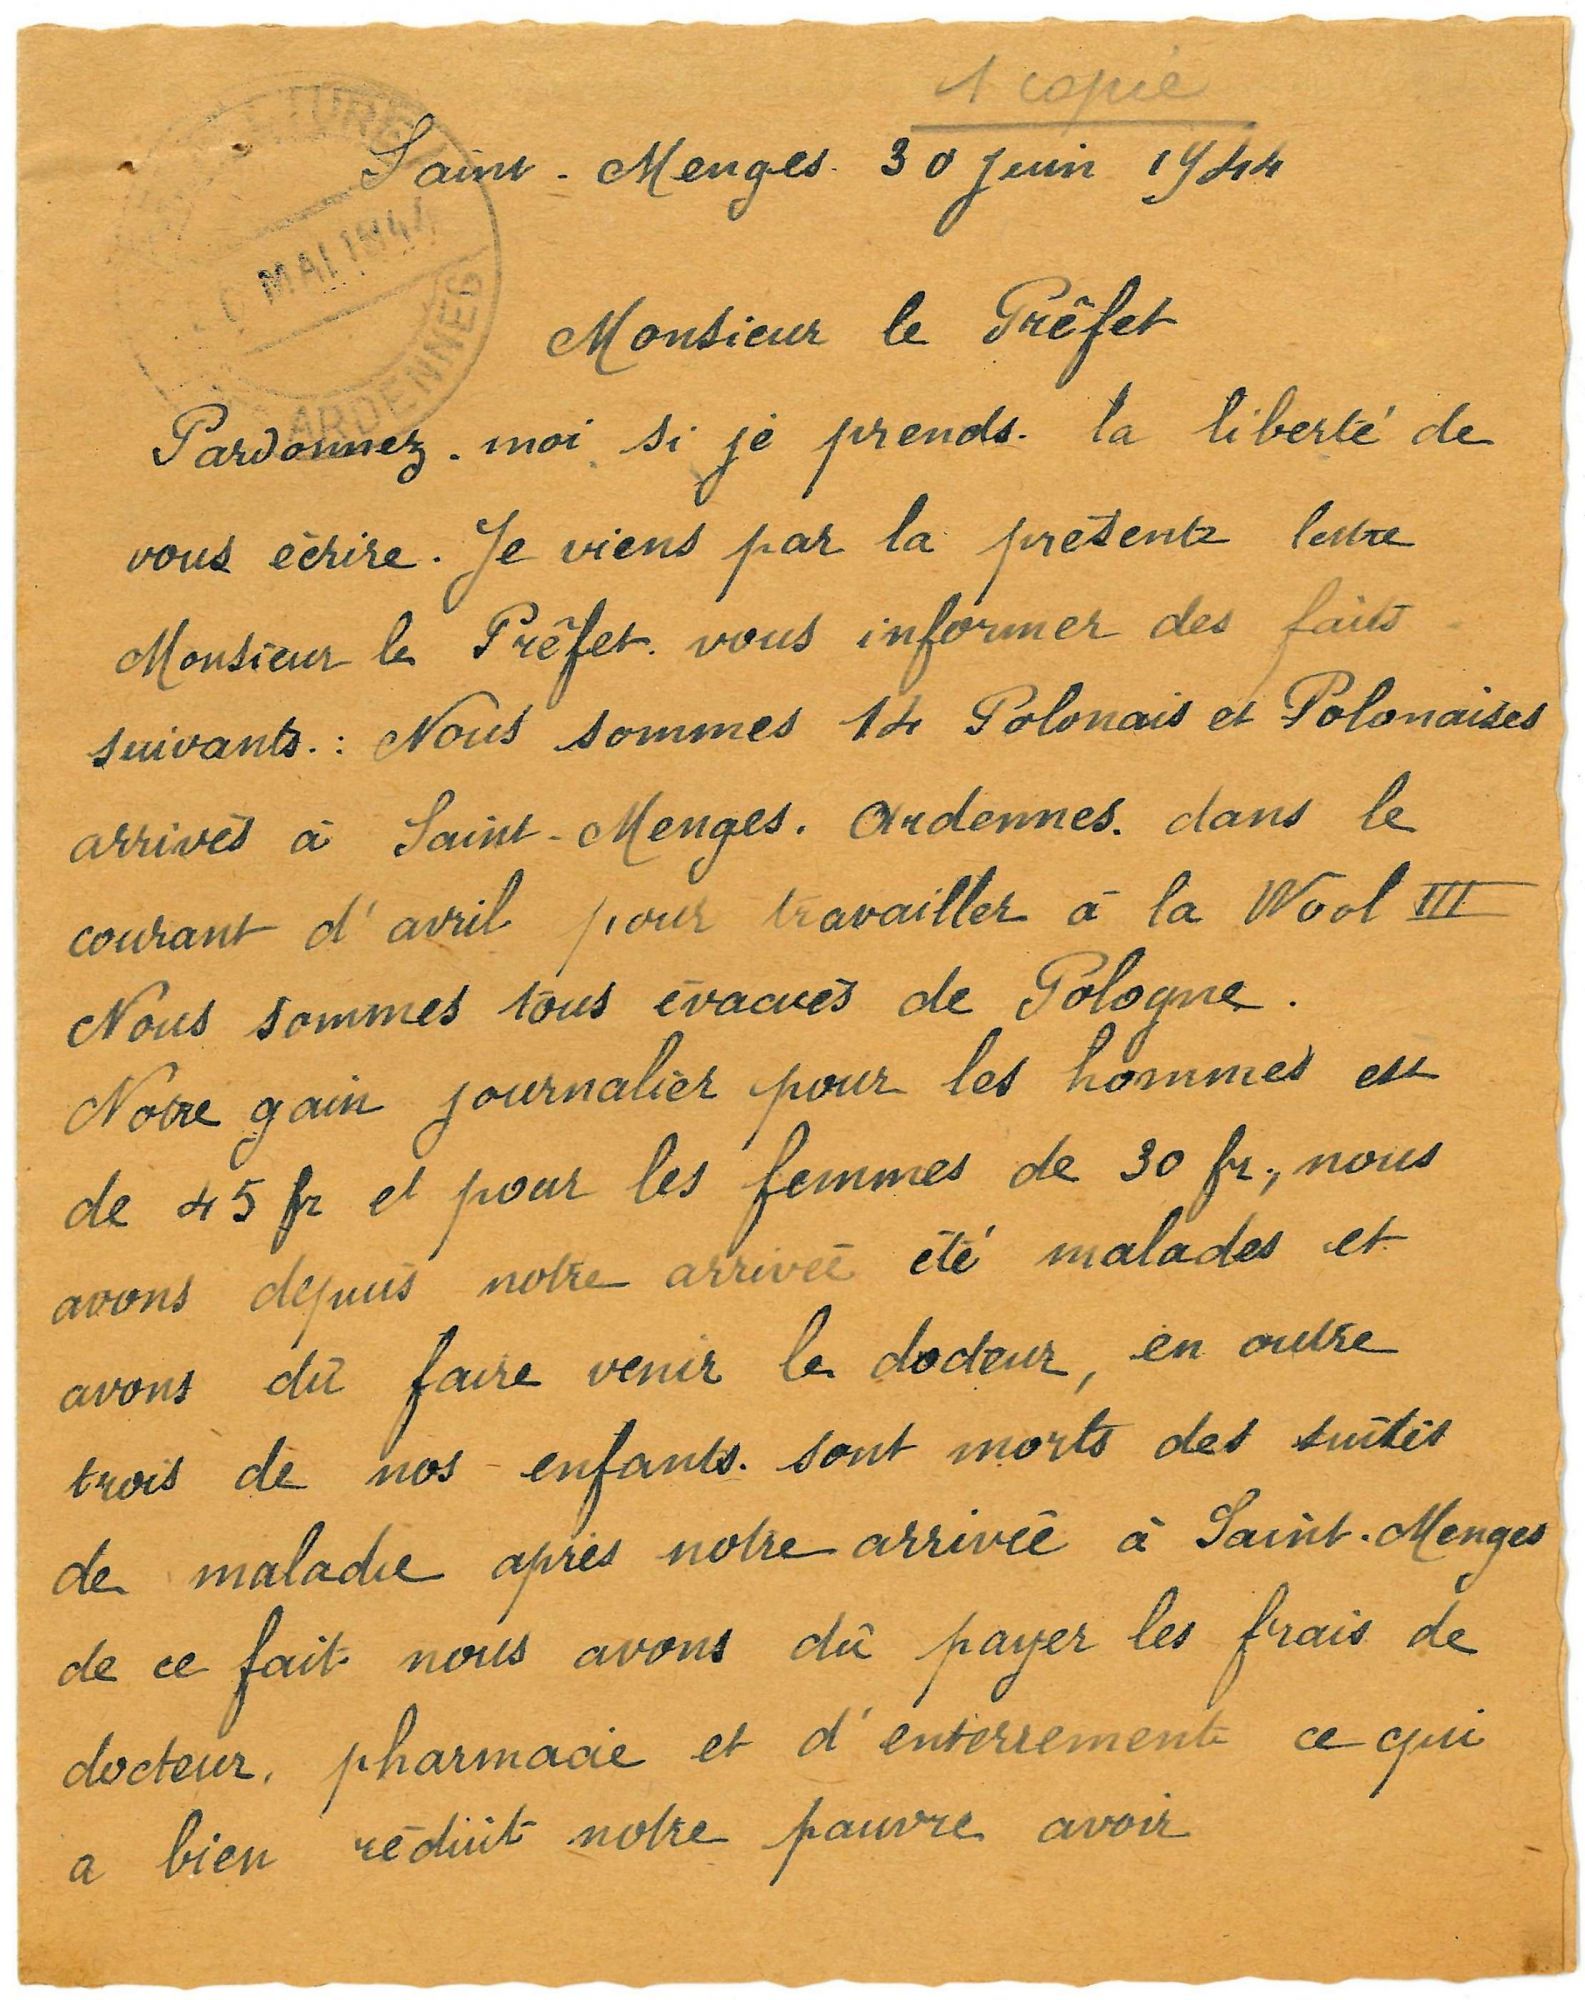 1 copie
Saint-Menges. 30 juin 1944
MAI 1944
ARDENNES
Monsieur le Prêfet
Pardonnez-moi si je prends. la liberté de
vous écrire. Je viens par la présente lettre
Monsieur le Prêfet. vous informer des faits
suivants.: Nous sommes 14 Polonais et Polonaises
arrivés à Saint-Menges. Ardennes. dans le
courant d'avril pour travailler à la Wool III
Nous sommes tous évacués de Pologne.
Notre gain journalier pour les hommes est
de 45 fr et pour les femmes de 30 fr., nous
avons depuis notre arrivée été malades et
avons dû faire venir le docteur, en outre
trois de nos enfants. sont morts des suites
de maladie après notre arrivée à Saint-Menges
de ce fait nous avons dû payer les frais de
docteur. pharmacie et d'enterrement ce qui
a bien réduit notre pauvre avoir